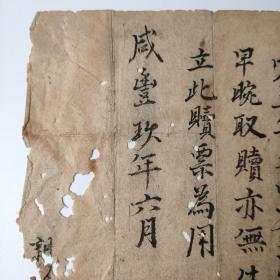 早晚取贖亦無
立此贖票為用
咸豐玖年六月
親